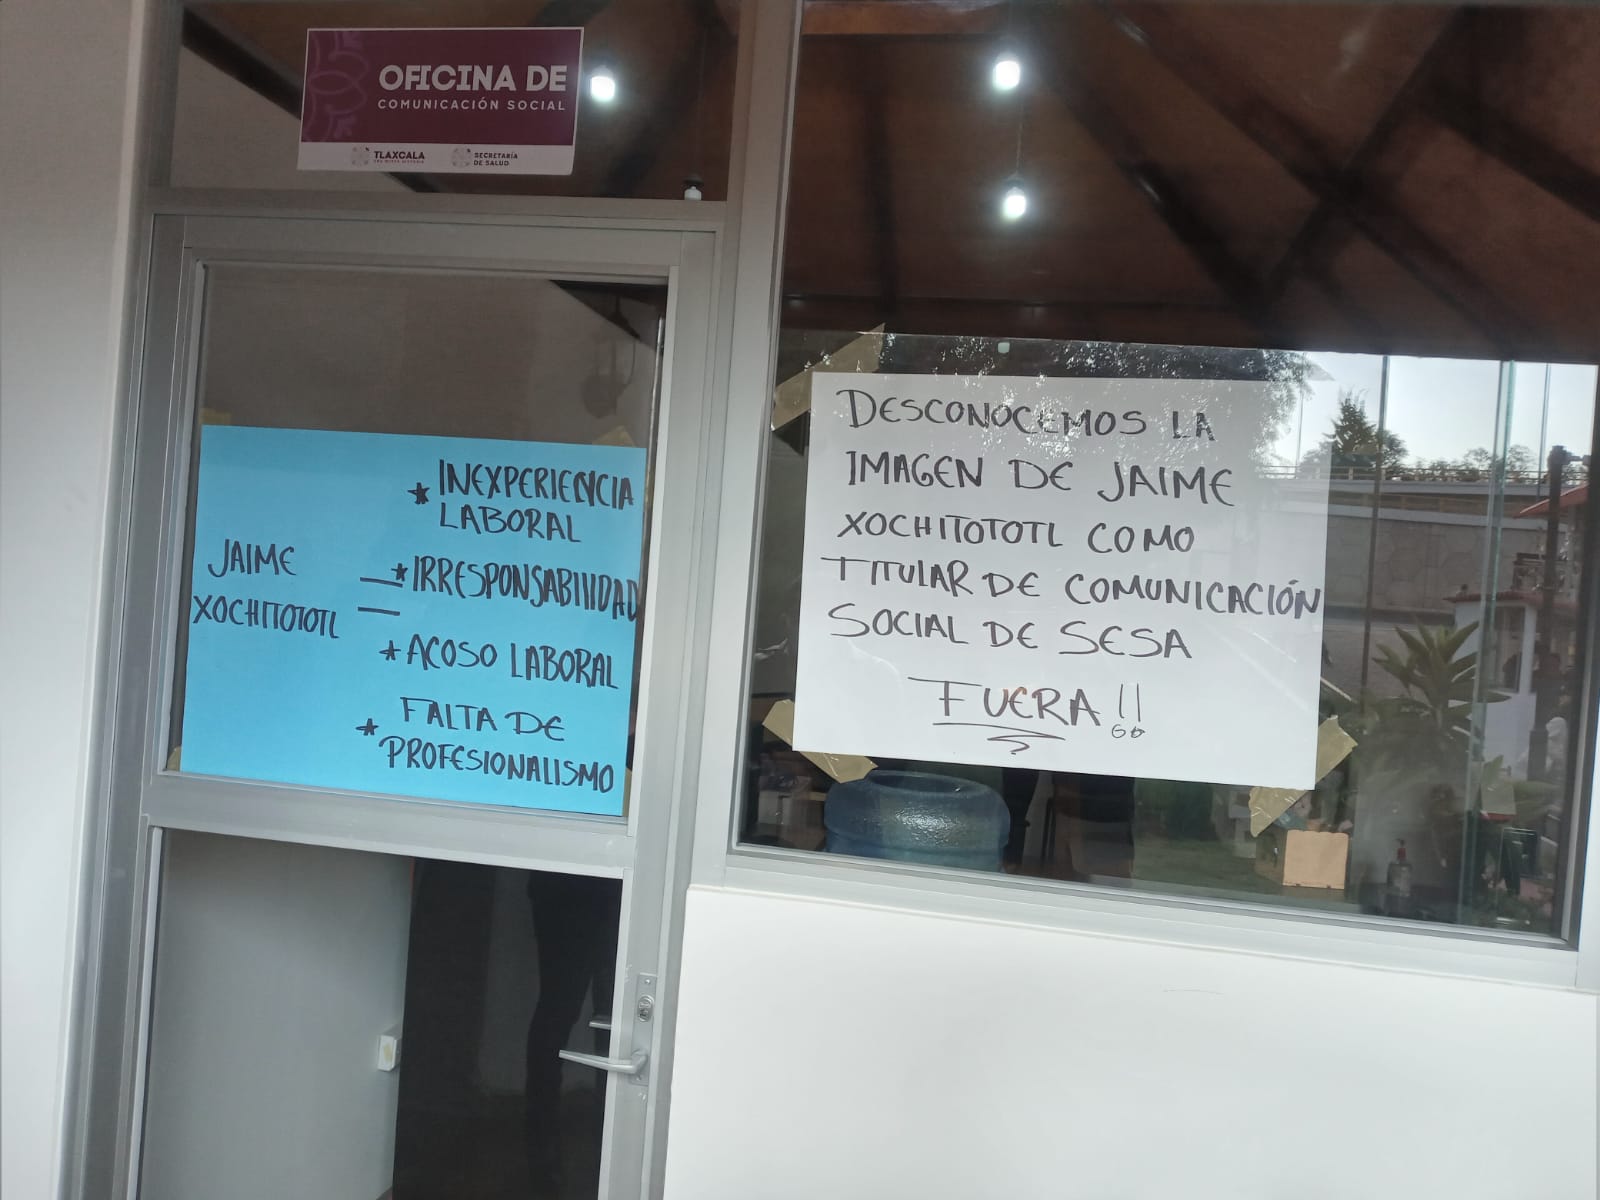 OFICINA DE
COMUNICACIÓN SOCIAL
TLAXCALA
SECRETARÍA
DE SALUD
JAIME
XOCHITOTOTL
=
* INEXPERIENCIA
LABORAL
* IRRESPONSABILIDAD
* ACOSO LABORAL
* FALTA DE
PROFESIONALISMO
DESCONOCEMOS LA
IMAGEN DE JAIME
XOCHITOTOTL COMO
TITULAR DE COMUNICACIÓN
SOCIAL DE SESA
FUERA!!